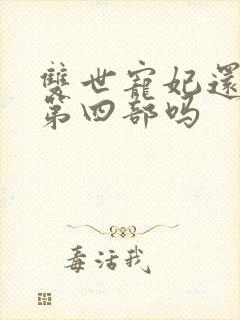 雙世寵妃還
第四部吗
毒活我